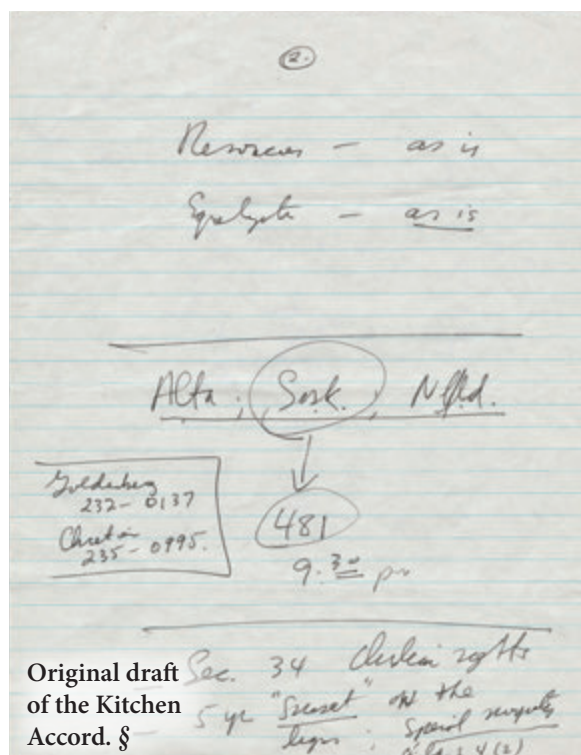 2.
Resources - as is
Equalizat - as is
Alta, Sask, Nfld.
Goldenberg
232-0137
Chretien
235-0995.
481
9.30 pm
Sec. 34 rights
5 yr "Sunset" on the
Special
Original draft
of the Kitchen
Accord. §